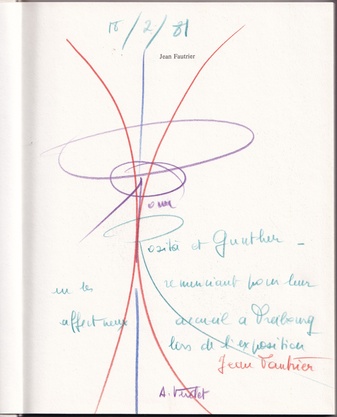 18/2/81
Jean Fautrier
Pour
Rosita et Gunther -
en les remerciant pour leur
affectueux accueil à
lors de l'exposition
Jean Fautrier
A. Verdet